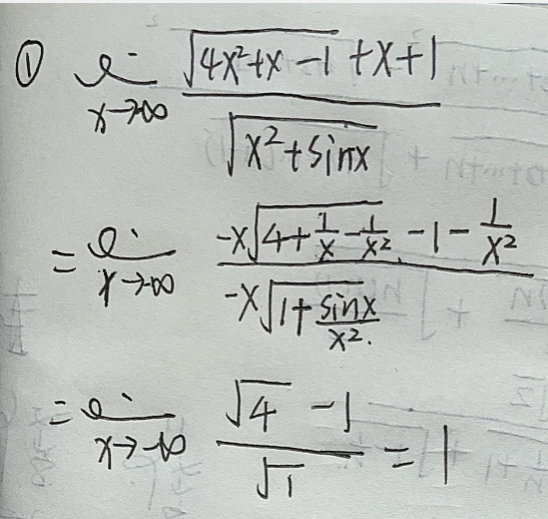 ① lim x→∞ (√(4x²+x-1) +x+1)/√(x²+sinx)
= lim x→-∞ (-x√(4+1/x-1/x²) -1-1/x²)/(-x√(1+sinx/x².))
= lim x→-∞ (√4 -1)/√1 = 1